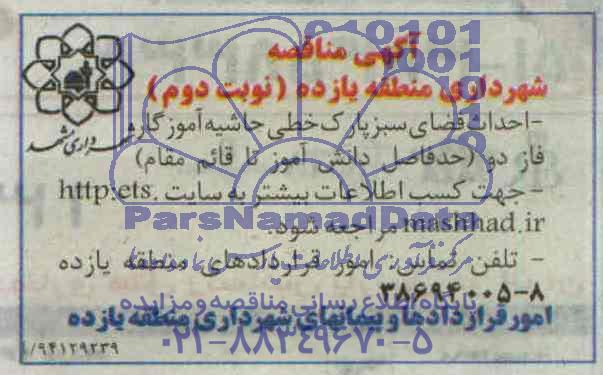 آگهی مناقصه
شهرداری منطقه یازده (نوبت دوم)
شهرداری مشهد
-احداث فضای سبز پارک خطی حاشیه آموزگار و
فاز دو (حدفاصل دانش آموز تا قائم مقام)
-جهت کسب اطلاعات بیشتر به سایت http:ets.
mashhad.ir مراجعه شود.
- تلفن تماس: امور قراردادهای منطقه یازده
۳۸۶۹۴۰۰۵-۸
امور قراردادها و پیمانهای شهرداری منطقه یازده
/۹۴۱۲۹۲۳۹
ParsNamadData
پایگاه اطلاع رسانی مناقصه و مزایده
۰۲۱-۸۸۳۴۹۶۷۰-۵